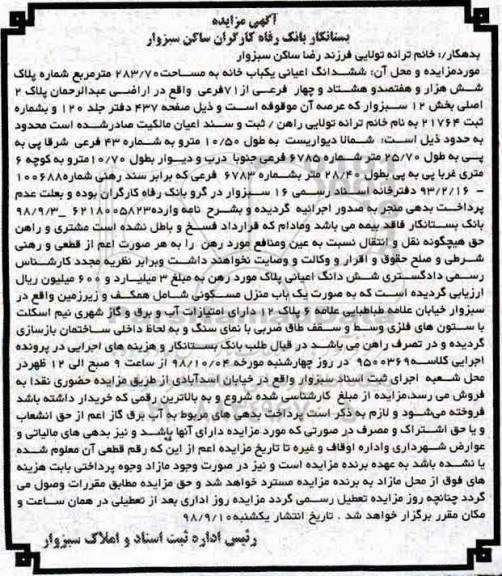 آگهی مزایده
بستانکار بانک رفاه کارگران ساکن سبزوار
بدهکار/: خانم ترانه تولایی فرزند رضا ساکن سبزوار
موردمزایده و محل آن: ششدانگ اعیانی یکباب خانه به مساحت۲۸۳/۷۰ مترمربع شماره پلاک
شش هزار و هفتصدو هشتاد و چهار فرعی از۷۱فرعی واقع در اراضی عبدالرحمان پلاک ۲
اصلی بخش ۱۲ سبزوار که عرصه آن موقوفه است و ذیل صفحه ۴۳۷ دفتر جلد ۱۲۰ و بشماره
ثبت ۲۱۷۶۴ به نام خانم ترانه تولایی راهن / ثبت و سند اعیان مالکیت صادرشده است محدود
به حدود ذیل است: شمالا دیواریست به طول ۱۰/۵۰ مترو به شماره ۴۳ فرعی شرقا پی به
پی به طول ۲۵/۷۰ متر شماره ۶۷۸۵ فرعی جنوبا درب و دیوار بطول ۱۰/۷۰مترو به کوچه ۶
متری غربا پی به پی بطول ۲۸/۴۰ متر بشماره ۶۷۸۳ فرعی که برابر سند رهنی شماره۱۰۰۶۸۸
- ۹۳/۲/۱۶ دفترخانه اسناد رسمی ۱۶ سبزوار در گرو بانک رفاه کارگران بوده و بعلت عدم
پرداخت بدهی منجر به صدور اجرائیه گردیده و بشرح نامه وارده۶۲۱۸۰۰۵۸۲۳ _۹۸/۹/۳
بانک بستانکار فاقد بیمه می باشد ومادام که قرارداد فسخ و باطل نشده است مشتری و راهن
حق هیچگونه نقل و انتقال نسبت به عین ومنافع مورد رهن را به هر صورت اعم از قطعی و رهنی
شرطی و صلح حقوق و اقرار و وکالت و وصایت نخواهند داشت وبرابر نظریه مجدد کارشناس
رسمی دادگستری شش دانگ اعیانی پلاک مورد رهن به مبلغ ۳ میلیارد و ۶۰۰ میلیون ریال
ارزیابی گردیده است که به صورت یک باب منزل مسکونی شامل همکف و زیرزمین واقع در
سبزوار خیابان علامه طباطبایی علامه ۶ پلاک ۱۲ دارای امتیازات آب و برق و گاز شهری نیم اسکلت
با ستون های فلزی وسط و سقف طاق ضربی با نمای سنگ و به لحاظ داخلی ساختمان بازسازی
گردیده و در تصرف راهن می باشد در قبال طلب بانک بستانکار و هزینه های اجرایی در پرونده
اجرایی کلاسه۹۵۰۰۳۶۹ در روز چهارشنبه مورخه ۹۸/۱۰/۰۴ از ساعت ۹ صبح الی ۱۲ ظهردر
محل شعبه اجرای ثبت اسناد سبزوار واقع در خیابان اسدآبادی از طریق مزایده حضوری نقدا به
فروش می رسد.مزایده از مبلغ کارشناسی شده شروع و به بالاترین رقمی که خریدار داشته باشد
فروخته می‌شود و لازم به ذکر است پرداخت بدهی های مربوط به آب برق گاز اعم از حق انشعاب
و یا حق اشتراک و مصرف در صورتی که مورد مزایده دارای آنها باشد و نیز بدهی های مالیاتی و
عوارض شهرداری واداره اوقاف و غیره تا تاریخ مزایده اعم از این که رقم قطعی آن معلوم شده
یا نشده باشد به عهده برنده مزایده است و نیز در صورت وجود مازاد وجوه پرداختی بابت هزینه
های فوق از محل مازاد به برنده مزایده مسترد خواهد شد و حق مزایده مطابق مقررات وصول می
گردد چنانچه روز مزایده تعطیل رسمی گردد مزایده روز اداری بعد از تعطیلی در همان ساعت و
مکان مقرر برگزار خواهد شد . تاریخ انتشار یکشنبه ۹۸/۹/۱۰
رئیس اداره ثبت اسناد و املاک سبزوار